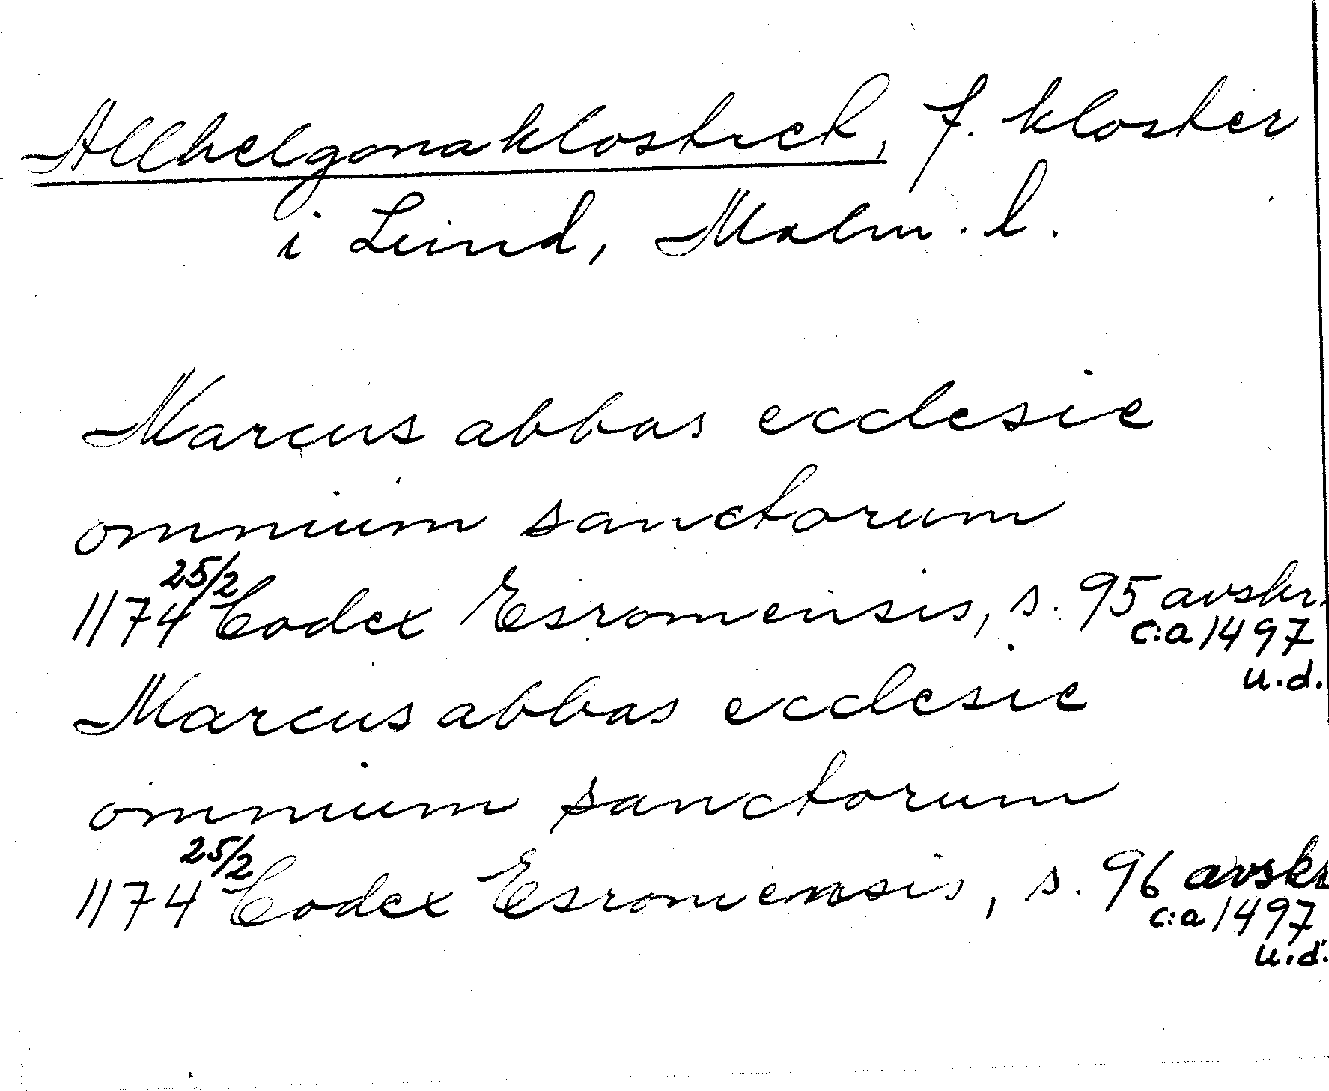 Allhelgonaklostret, f. kloster
i Lund, Malm. l.
Marcus abbas ecclesie
omnium sanctorum
1174 25/2 Codex Esromensis, s. 95 avskr.
c:a 1497
u.d.
Marcus abbas ecclesie
omnium sanctorum
1174 25/2 Codex Esromensis, s. 96 avskr
c:a 1497
u.d.